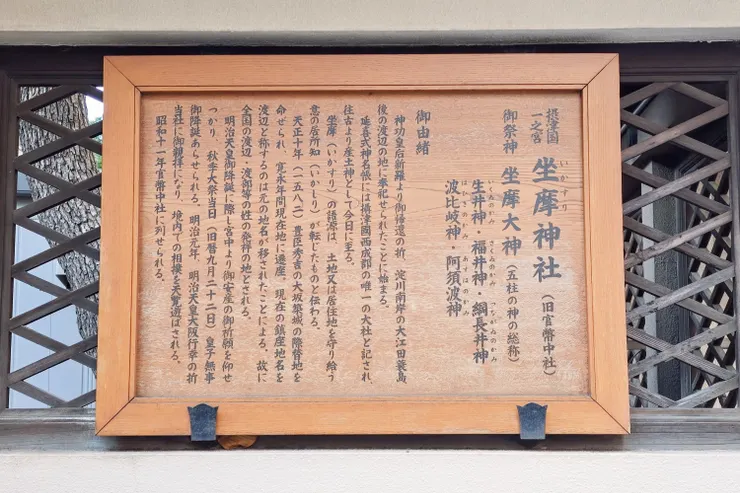 摂津国
一之宮
いかすり
坐摩神社（旧官幣中社）
御祭神 坐摩大神（五柱の神の総称）
いくゐのかみ さくゐのかみ つながゐのかみ
生井神・福井神・綱長井神
はひきのかみ あすはのかみ
波比岐神・阿須波神
御由緒
神功皇后新羅より御帰還の折、淀川南岸の大江田蓑島
後の渡辺の地に奉祀せられたことに始まる。
延喜式神名帳には摂津國西成郡の唯一の大社と記され、
往古より産土神として今日に至る。
坐摩（いかすり）の語源は、土地又は居住地を守り給う
意の居所知（いかしり）が転じたものと伝わる。
天正十年（一五八二）豊臣秀吉の大坂築城の際替地を
命ぜられ、寛永年間現在地に遷座。現在の鎮座地名を
渡辺と称するのは元の地名が移されたことによる。故に
全国の渡辺、渡部等の姓の発祥の地とされる。
明治天皇御降誕に際し宮中より御安産の御祈願を仰せ
つかり、秋季大祭当日（旧暦九月二十二日）皇子無事
御降誕あらせられる。明治元年、明治天皇大阪行幸の折
当社に御親拝になり、境内での相撲を天覧遊ばされる。
昭和十一年官幣中社に列せられる。